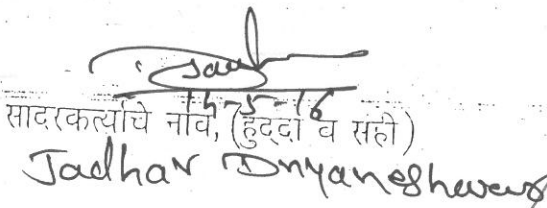 14-5-16
सादरकर्त्याचे नांव, (हुद्दा व सही)
Jadhav Dnyaneshwar